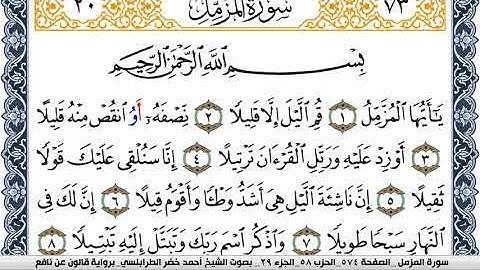 ٧٣ سُورَةُ المُزَّمِّل ٢٠
بِسْمِ اللَّهِ الرَّحْمَٰنِ الرَّحِيمِ
يَٰأَيُّهَا اَلْمُزَّمِّلُ ١ قُمِ اِليْلَ إِلَّا قَلِيلًا ٢ نِصْفَهُۥٓ أَوُ اُنقُصْ مِنْهُ قَلِيلًا
٣ أَوْ زِدْ عَلَيْهِ وَرَتِّلِ اِلْقُرْءَانَ تَرْتِيلًا ٤ إِنَّا سَنُلْقِى عَلَيْكَ قَوْلًا
ثَقِيلًا ٥ إِنَّ نَاشِئَةَ اَليْلِ هِيَ أَشَدُّ وَطْـًٔا وَأَقْوَمُ قِيلًا ٦ إِنَّ لَكَ فِى
اِلنَّهَارِ سَبْحًا طَوِيلًا ٧ وَاذْكُرِ اِسْمَ رَبِّكَ وَتَبَتَّلْ إِلَيْهِ تَبْتِيلًا ٨
سورة المزمل _الصفحة ٥٧٤_الحزب ٥٨_الجزء ٢٩_ بصوت الشيخ أحمد خضر الطرابلسي_ برواية قالون عن نافع